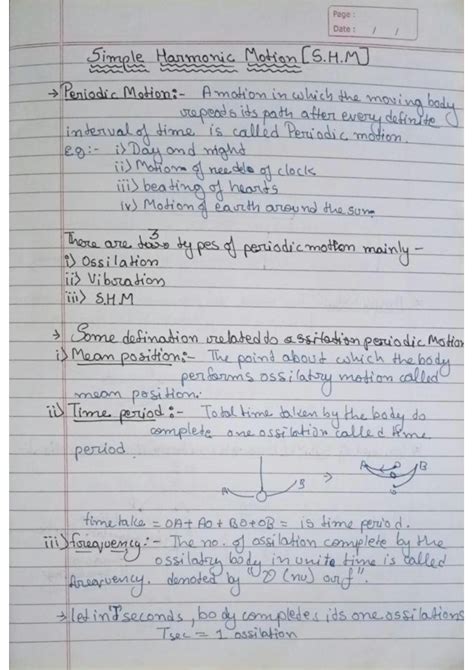 Page :
Date : / /
Simple Harmonic Motion [S.H.M]
→ Periodic Motion:- A motion in which the moving body
repeats its path after every definite
interval of time is called Periodic motion.
eg:- i) Day and night
ii) Motion of needle of clocks
iii) beating of hearts
iv) Motion of earth around the sun.
There are 3 types of periodic motion mainly -
i) Ossilation
ii) Vibration
iii) S.H.M
→ Some defination related to periodic Motion
i) Mean position:- The point about which the body
performs ossilatry motion called
mean position.
ii) Time period:- Total time taken by the body to
complete one ossilation called time
period.
A B → A B
O O
time take = OA + AO + BO + OB = is time period.
iii) frequency:- The no. of ossilation complete by the
ossilatry body in unite time is called
frequency. denoted by "ν (nu) or f".
→ let in T seconds, body completes its one ossilations
Tsec = 1 ossilation